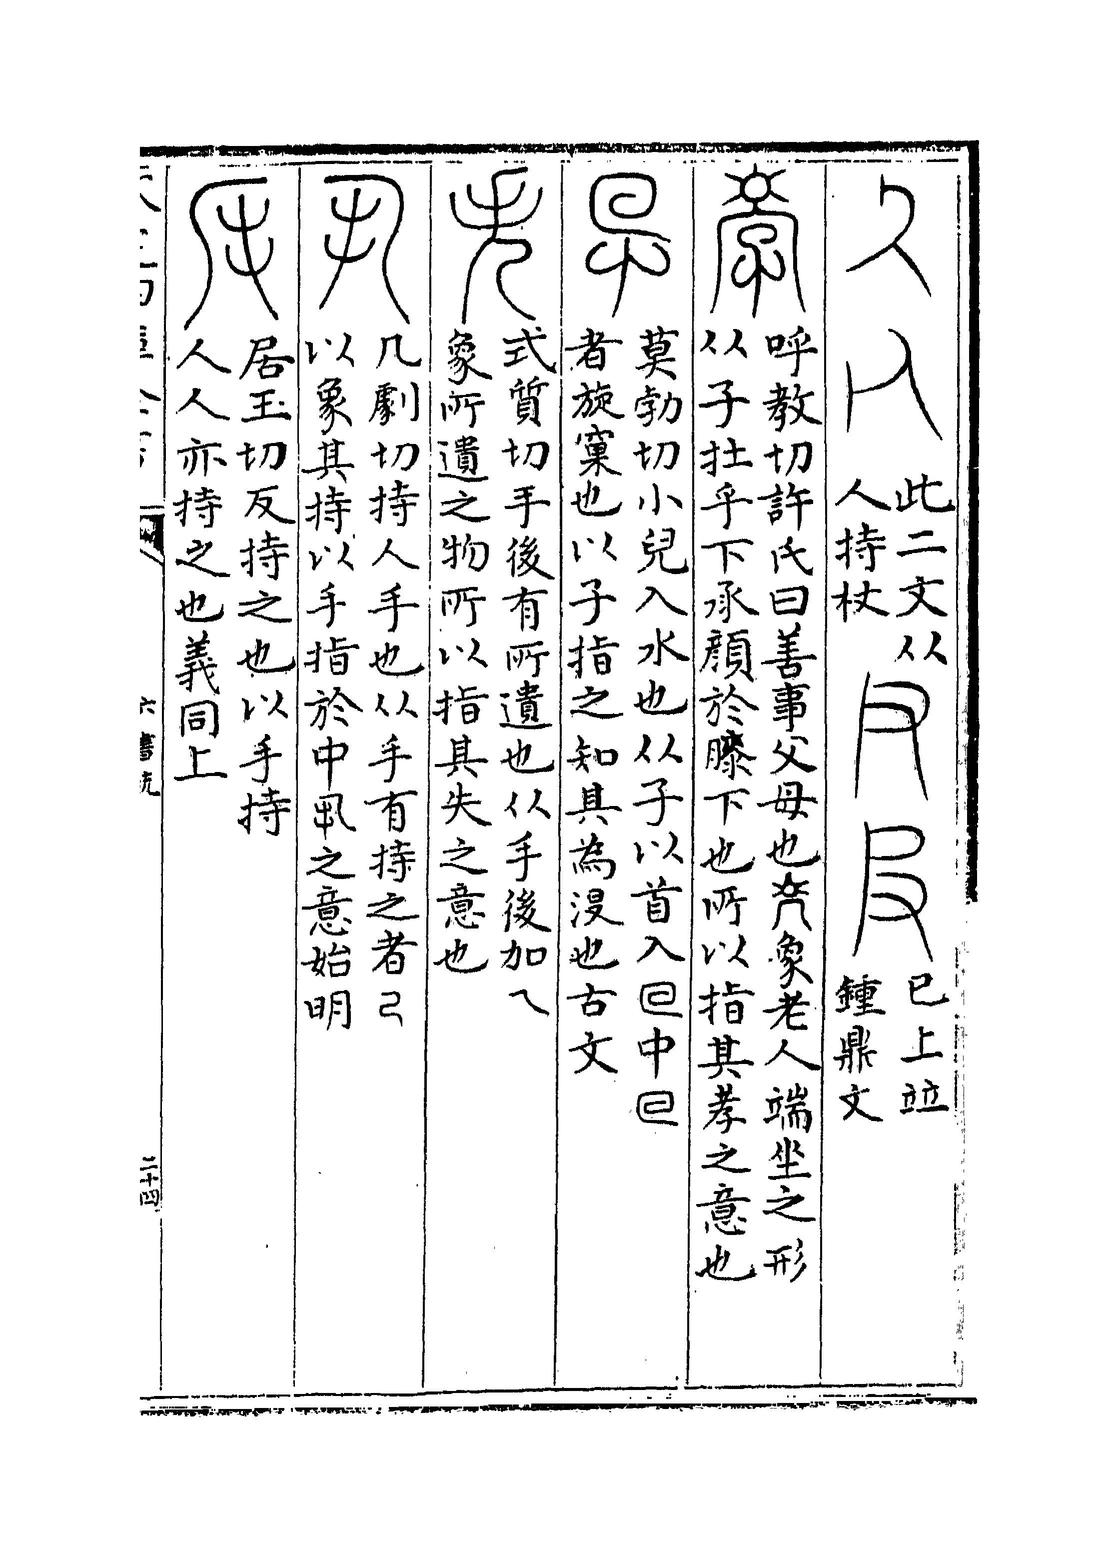 此二文从
人持杖
已上竝
鍾鼎文
呼教切許氏曰善事父母也象老人端坐之形
从子拄乎下承顔於膝下也所以指其孝之意也
莫勃切小兒入水也从子以首入囘中囘
者旋窠也以子指之知其為沒也古文
式質切手後有所遺也从手後加乀
象所遺之物所以指其失之意也
几劇切持人手也从手有持之者
以象其持以手指於中丮之意始明
居玉切反持之也以手持
人人亦持之也義同上
六書統
二十四